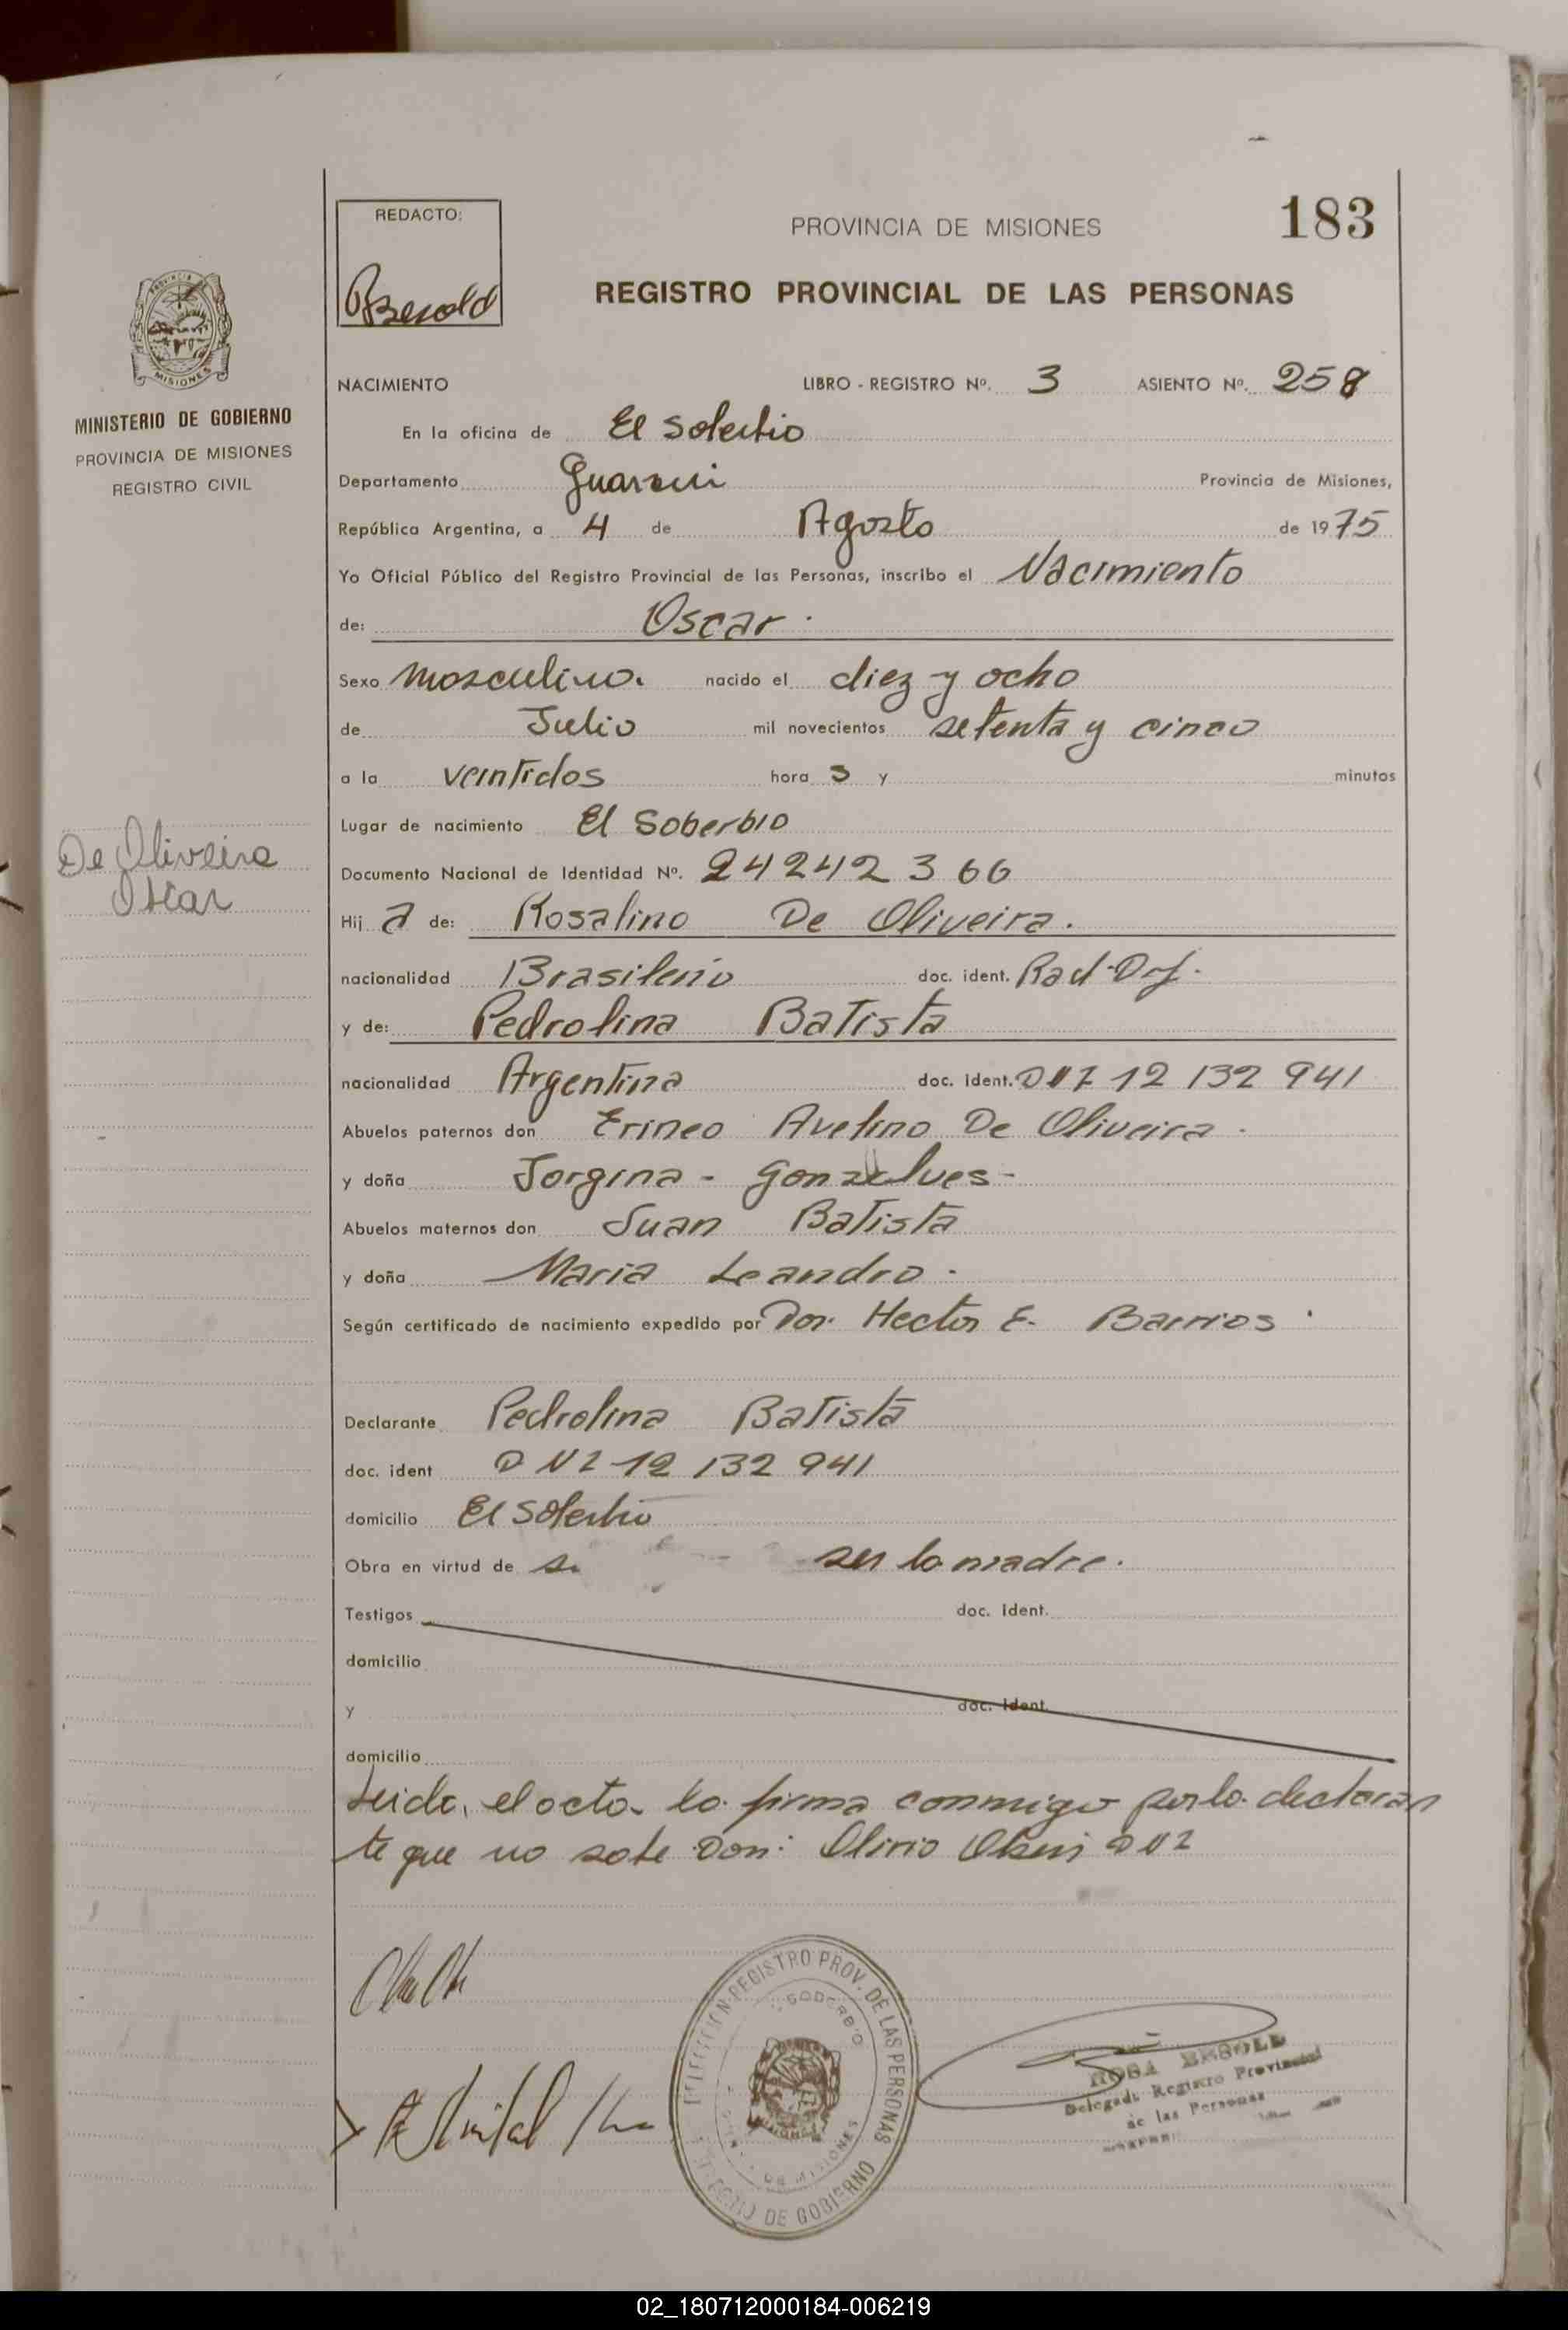 183
REDACTO:
Besold
PROVINCIA DE MISIONES
REGISTRO PROVINCIAL DE LAS PERSONAS
MISIONES
MINISTERIO DE GOBIERNO
PROVINCIA DE MISIONES
REGISTRO CIVIL
NACIMIENTO LIBRO - REGISTRO Nº. 3 ASIENTO Nº. 258
En la oficina de El Soberbio
Departamento Guarani Provincia de Misiones,
República Argentina, a 4 de Agosto de 1975
Yo Oficial Público del Registro Provincial de las Personas, inscribo el Nacimiento
de: Oscar.
Sexo masculino. nacido el diez y ocho
de Julio mil novecientos setenta y cinco
a la veintidos hora s y minutos
Lugar de nacimiento El Soberbio
De Oliveira
Oscar
Documento Nacional de Identidad Nº. 24242366
Hij o de: Rosalino De Oliveira.
nacionalidad Brasileño doc. ident.
y de: Pedrolina Batista
nacionalidad Argentina doc. ident. DNI 12 132 941
Abuelos paternos don Erineo Avelino De Oliveira.
y doña Jorgina - Gonzalves -
Abuelos maternos don Juan Batista
y doña Maria Leandro.
Según certificado de nacimiento expedido por Dor. Hector E. Barrios.
Declarante Pedrolina Batista
doc. ident DNI 12 132 941
domicilio El Soberbio
Obra en virtud de ser la madre.
Testigos doc. ident.
domicilio
y doc. ident.
domicilio
Leida, el acta la firma conmigo por la declaran
te que no sabe Don: Olirio DNI
DIRECCION REGISTRO PROV. DE LAS PERSONAS
DE GOBIERNO
ROSA BESOLD
Delegada Registro Provincial
de las Personas
02_180712000184-006219